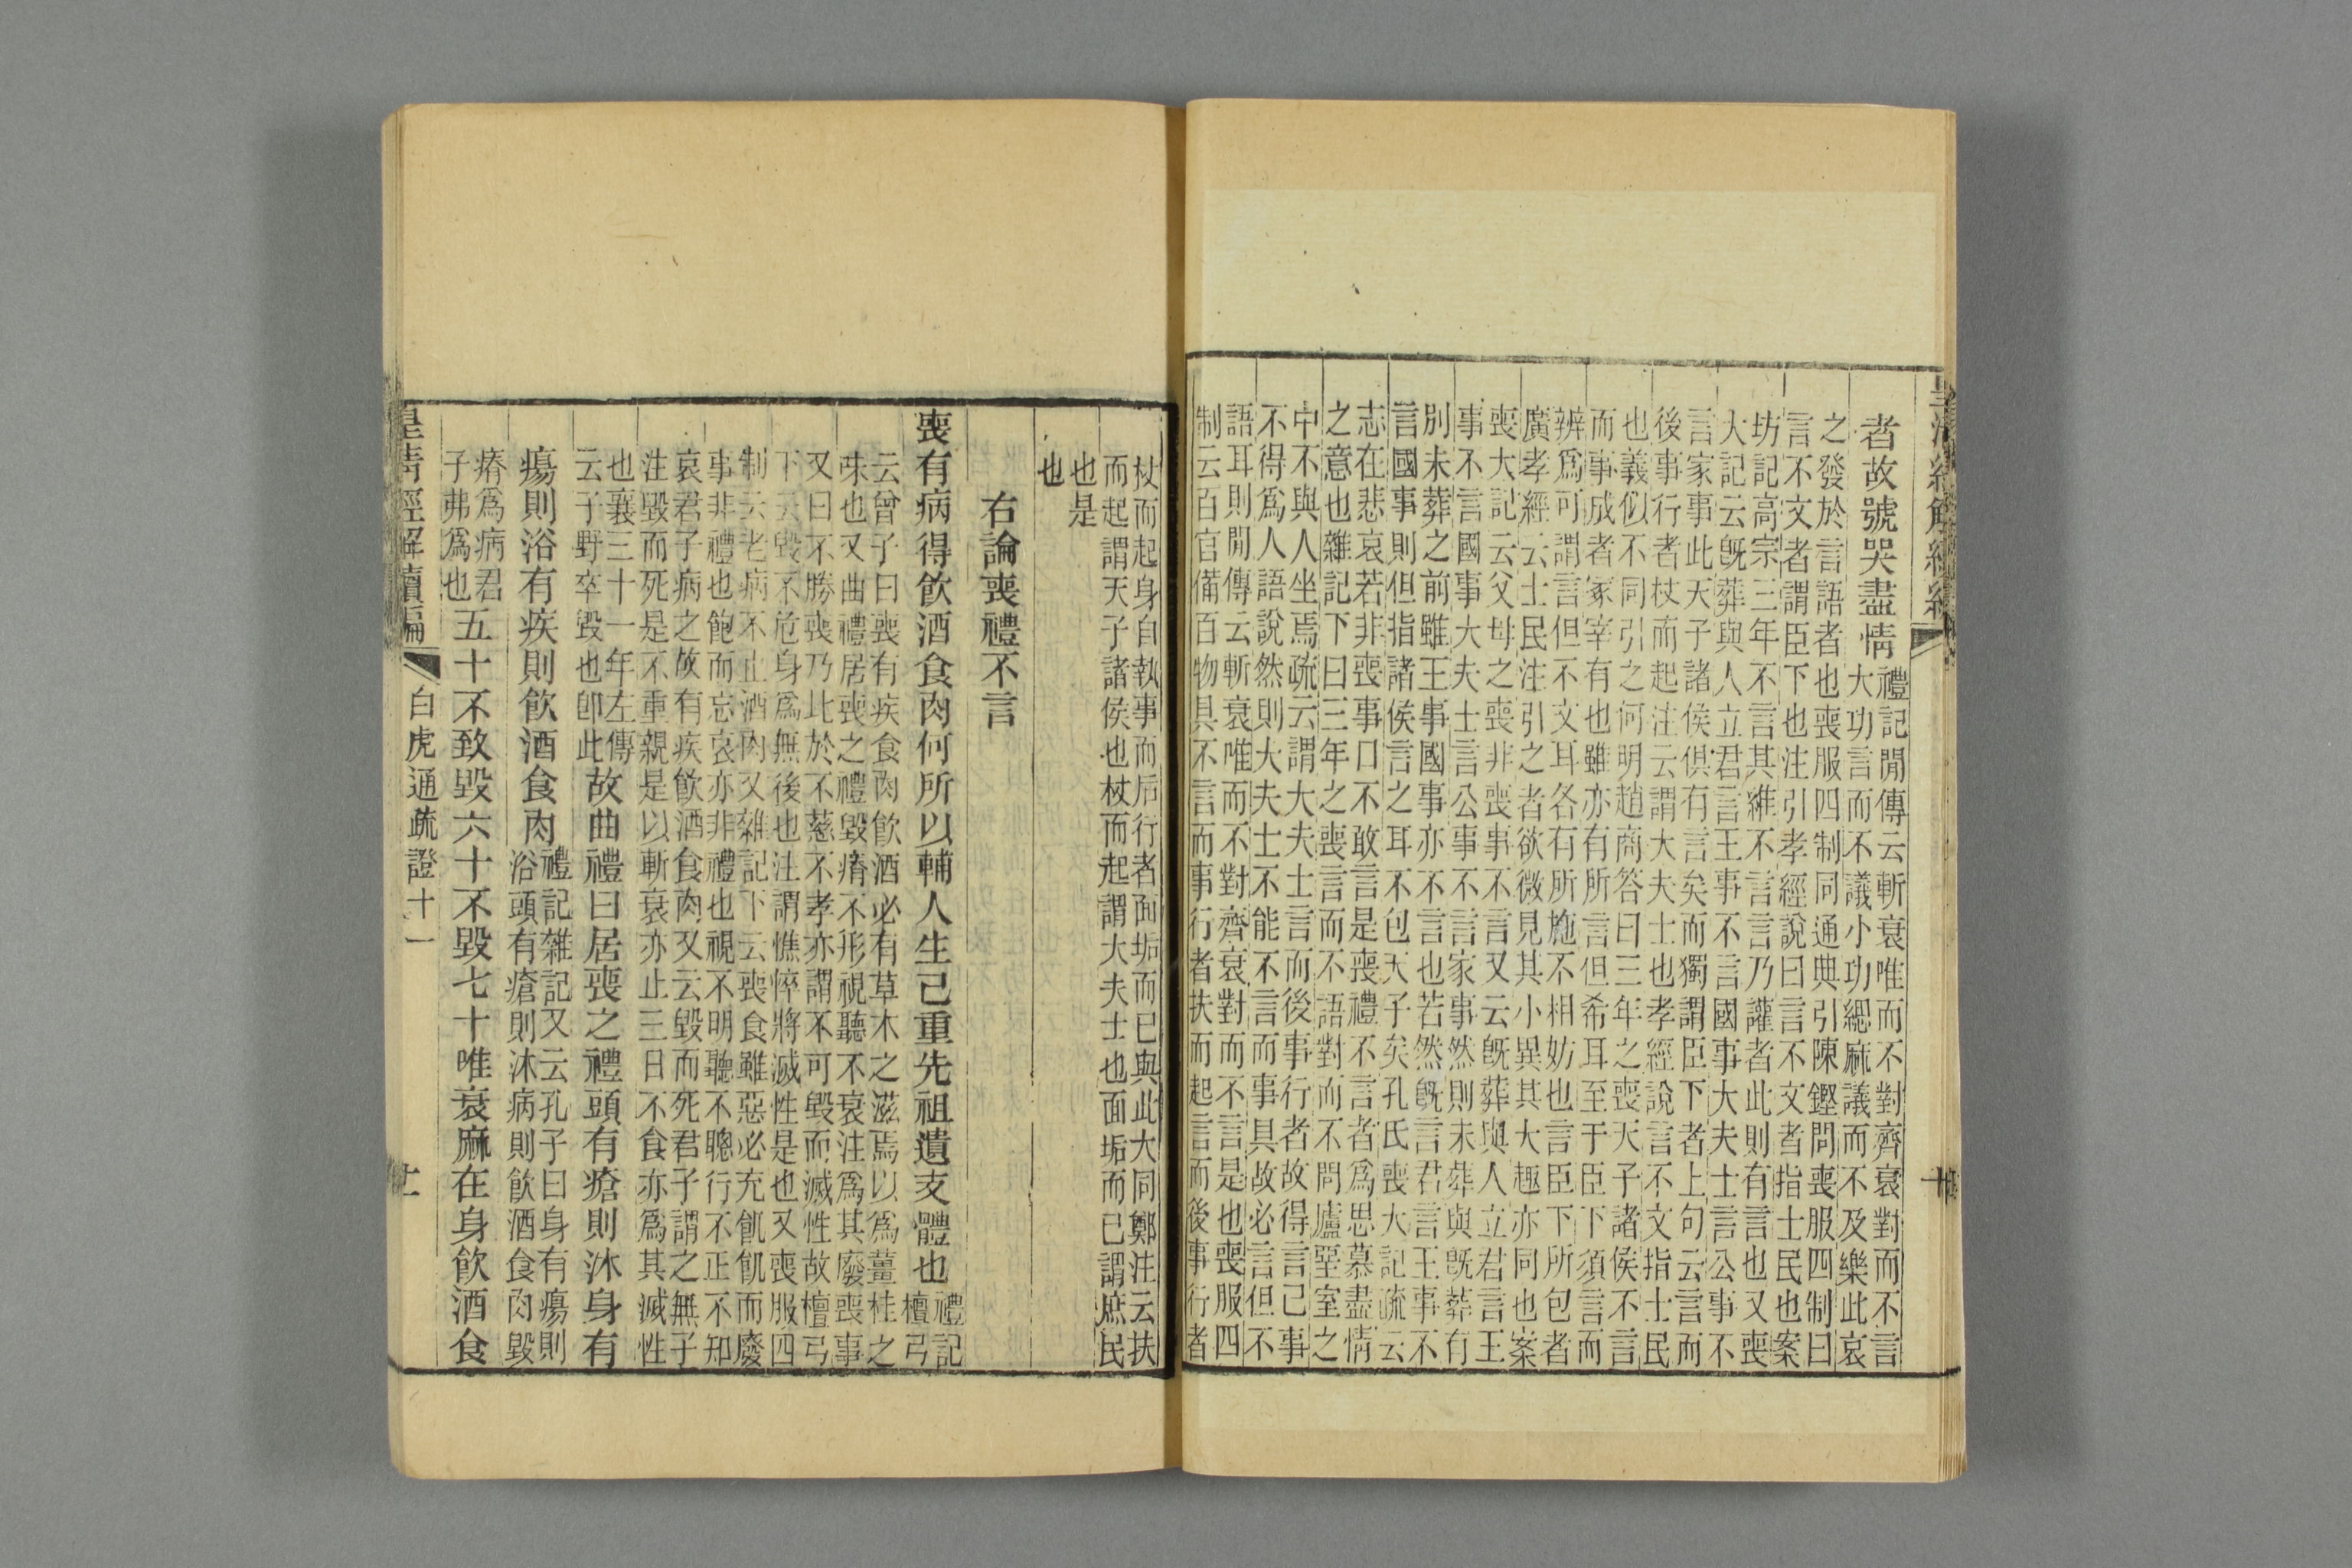 皇清經解續編
十
者故號哭盡情
禮記閒傳云斬衰唯而不對齊衰對而不言
大功言而不議小功緦麻議而不及樂此哀
之發於言語者也喪服四制同通典引陳鏗問喪服四制曰
言不文者謂臣下也注引孝經說曰言不文者指士民也案
坊記高宗三年不言其維不言言乃讙者此則有言也又喪
大記云旣葬與人立君言王事不言國事大夫士言公事不
言家事此天子諸侯俱有言矣而獨謂臣下者上句云言而
後事行者杖而起注云謂大夫士也孝經說言不文指士民
也義似不同引之何明趙商答曰三年之喪天子諸侯不言
而事成者冢宰有也雖亦有所言但希耳至于臣下須言而
辨爲可謂言但不文耳各有所施不相妨也言臣下所包者
廣孝經云士民注引之者欲微見其小異其大趣亦同也案
喪大記云父母之喪非喪事不言又云旣葬與人立君言王
事不言國事大夫士言公事不言家事然則未葬與旣葬有
別未葬之前雖王事國事亦不言也若然旣言君言王事不
言國事則但指諸侯言之耳不包天子矣孔氏喪大記疏云
志在悲哀若非喪事口不敢言是喪禮不言者爲思慕盡情
之意也雜記下曰三年之喪言而不語對而不問廬堊室之
中不與人坐焉疏云謂大夫士言而後事行者故得言己事
不得爲人語說然則大夫士不能不言而事具故必言但不
語耳則閒傳云斬衰唯而不對齊衰對而不言是也喪服四
制云百官備百物具不言而事行者扶而起言而後事行者
杖而起身自執事而后行者面垢而已與此大同鄭注云扶
而起謂天子諸侯也杖而起謂大夫士也面垢而已謂庶民
也是
也
右論喪禮不言
喪有病得飮酒食肉何所以輔人生己重先祖遺支體也
禮記
檀弓
云曾子曰喪有疾食肉飮酒必有草木之滋焉以爲薑桂之
味也又曲禮居喪之禮毀瘠不形視聽不衰注爲其廢喪事
又曰不勝喪乃比於不慈不孝亦謂不可毀而滅性故檀弓
下云毀不危身爲無後也注謂憔悴將滅性是也又喪服四
制云老病不止酒肉又雜記下云喪食雖惡必充飢飢而廢
事非禮也飽而忘哀亦非禮也視不明聽不聰行不正不知
哀君子病之故有疾飮酒食肉又云毀而死君子謂之無子
注毀而死是不重親是以斬衰亦止三日不食亦爲其滅性
也襄三十一年左傳
云子野卒毀也卽此
故曲禮曰居喪之禮頭有瘡則沐身有
瘍則浴有疾則飮酒食肉
禮記雜記又云孔子曰身有瘍則
浴頭有瘡則沐病則飮酒食肉毀
瘠爲病君
子弗爲也
五十不致毀六十不毀七十唯衰麻在身飮酒食
皇清經解續編
白虎通疏證十一
十一